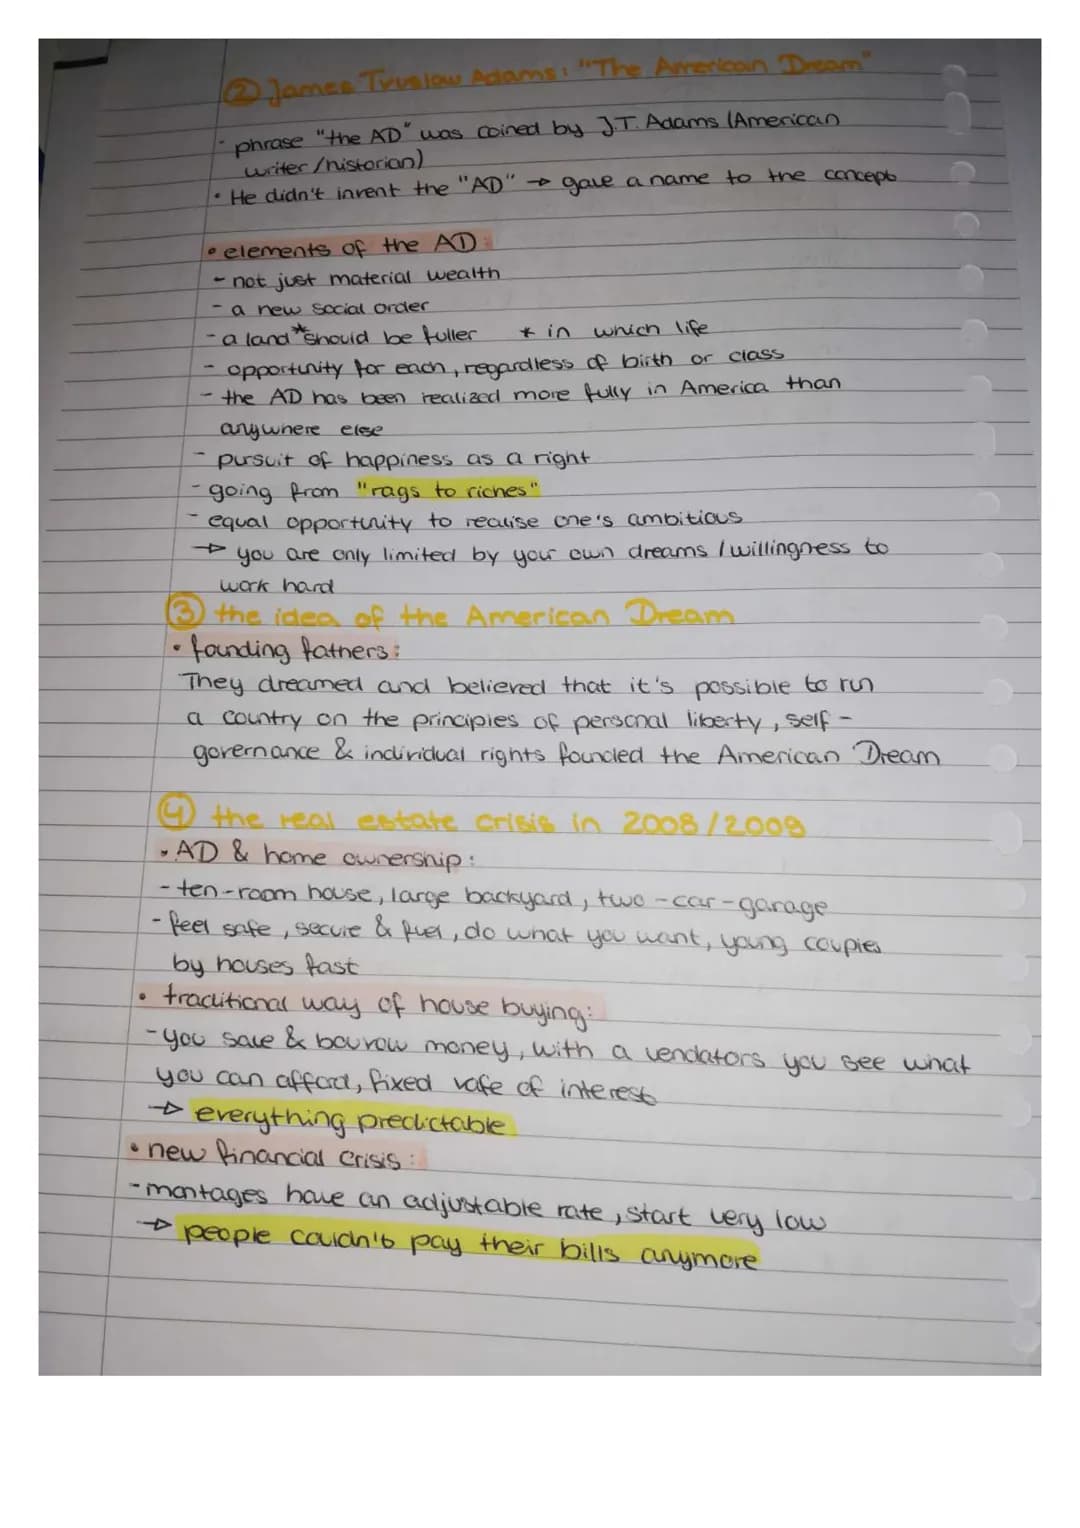 ② James Truslow Adams: "The American Dream"
- phrase "the AD" was coined by J.T. Adams (American
writer/historian)
• He didn't invent the "AD" → gave a name to the concept
• elements of the AD:
- not just material wealth
- a new social order
- a land *should be fuller * in which life
- opportunity for each, regardless of birth or class
- the AD has been realized more fully in America than
anywhere else
- pursuit of happiness as a right
- going from "rags to riches"
- equal opportunity to realise one's ambitious
→ you are only limited by your own dreams / willingness to
work hard
③ the idea of the American Dream
• founding fathers:
They dreamed and believed that it's possible to run
a country on the principles of personal liberty, self-
governance & individual rights founded the American Dream
④ the real estate crisis in 2008/2009
• AD & home ownership:
- ten-room house, large backyard, two-car-garage
- feel safe, secure & fuel, do what you want, young couples
by houses fast
• traditional way of house buying:
- you save & bourow money, with a vendators you see what
you can afford, fixed rate of interest
→ everything predictable
• new financial crisis:
- montages have an adjustable rate, start very low
→ people couldn't pay their bills anymore